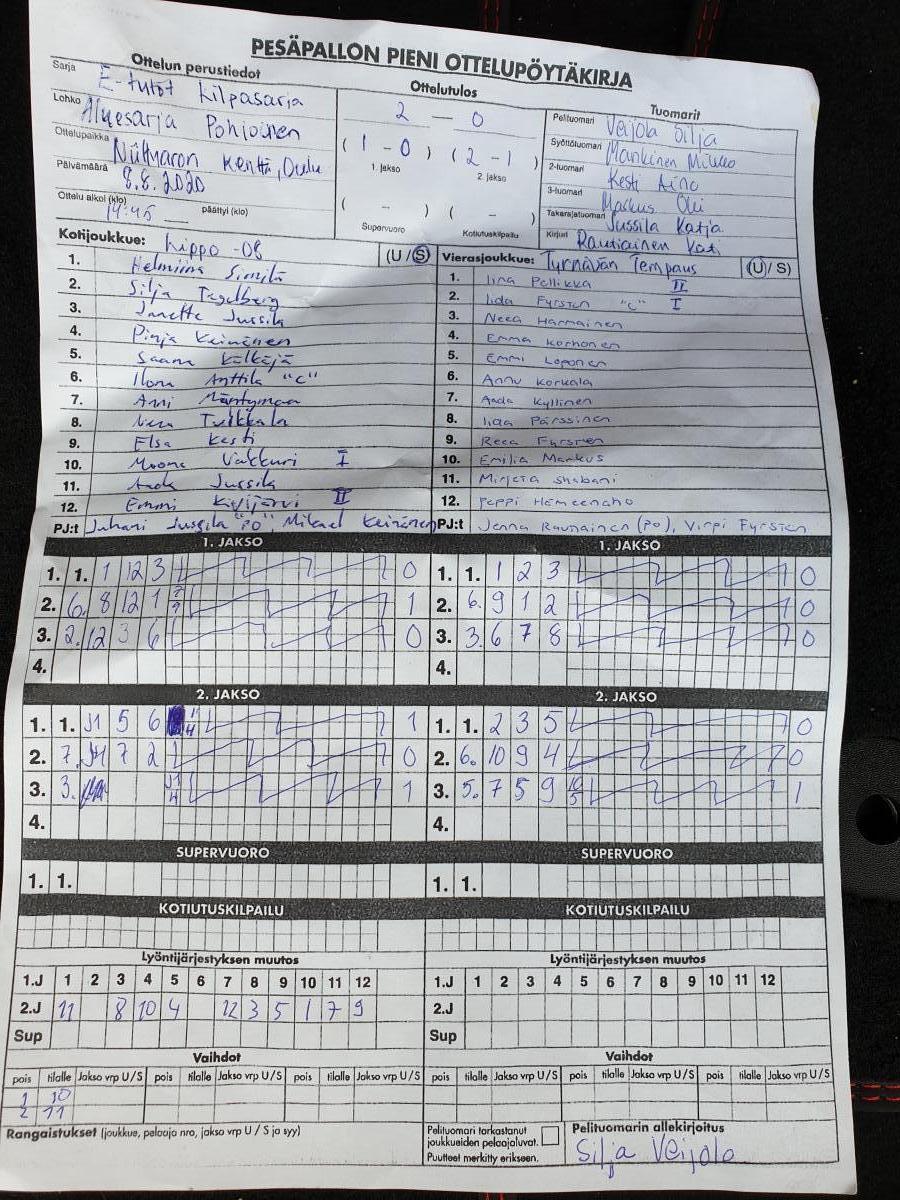 PESÄPALLON PIENI OTTELUPÖYTÄKIRJA
Ottelun perustiedot
Sarja E-tytöt Kilpasarja
Lohko Aluesarja Pohjoinen
Ottelupaikka Niittyaron Kenttä, Oulu
Päivämäärä 8.8.2020
Ottelu alkoi (klo) 14:45 päättyi (klo)
Ottelutulos
2 — 0
( 1 - 0 ) ( 2 - 1 )
1. jakso 2. jakso
( - ) ( - )
Supervuoro Kotiutuskilpailu
Tuomarit
Pelituomari Veijola Silja
Syöttötuomari Mankinen Mikko
2-tuomari Kesti Aino
3-tuomari Markus Oki
Takarajatuomari Jussila Katja
Kirjuri Rautiainen Kati
Kotijoukkue: Lippo -08 (U / S)
1. Helmiina Similä
2. Silja Tegelberg
3. Janette Jussila
4. Pinja Keinänen
5. Saana Kälkäjä
6. Ilona Anttila "C"
7. Anni Mäntymaa
8. Neea Tuikkala
9. Elsa Kesti
10. Moona Vakkuri I
11. Aada Jussila
12. Emmi Kivijärvi II
PJ:t Juhani Jussila "PO" Mikael Keinänen
Vierasjoukkue: Tyrnävän Tempaus (U / S)
1. Iina Pellikka II
2. Iida Fyrsten "C" I
3. Neea Harmainen
4. Emma Korhonen
5. Emmi Loponen
6. Annu Korkala
7. Aada Kyllinen
8. Iida Pärssinen
9. Reea Fyrsten
10. Emilia Markus
11. Mirjeta Shabani
12. Peppi Hemeenaho
PJ:t Jenna Raunainen (PO), Virpi Fyrsten
1. JAKSO
1. 1. 1 12 3 0
2. 6. 8 12 1 7 9 1
3. 2. 12 3 6 0
4.
1. JAKSO
1. 1. 1 2 3 0
2. 6. 9 1 2 0
3. 3. 6 7 8 0
4.
2. JAKSO
1. 1. J1 5 6 1 4 1
2. 7. 7 2 0
3. 3. J1 4 1
4.
2. JAKSO
1. 1. 2 3 5 0
2. 6. 10 9 4 0
3. 5. 7 5 9 10 5 1
4.
SUPERVUORO
1. 1.
SUPERVUORO
1. 1.
KOTIUTUSKILPAILU
KOTIUTUSKILPAILU
Lyöntijärjestyksen muutos
1.J 1 2 3 4 5 6 7 8 9 10 11 12
2.J 11 8 10 4 12 3 5 1 7 9
Sup
Lyöntijärjestyksen muutos
1.J 1 2 3 4 5 6 7 8 9 10 11 12
2.J
Sup
Vaihdot
pois tilalle Jakso vrp U / S pois tilalle Jakso vrp U / S pois tilalle Jakso vrp U / S
1 10
2 11
Vaihdot
pois tilalle Jakso vrp U / S pois tilalle Jakso vrp U / S pois tilalle Jakso vrp U / S
Rangaistukset (joukkue, pelaaja nro, jakso vrp U / S ja syy)
Pelituomari tarkastanut
joukkueiden pelaajaluvat.
Puutteet merkitty erikseen.
Pelituomarin allekirjoitus
Silja Veijola